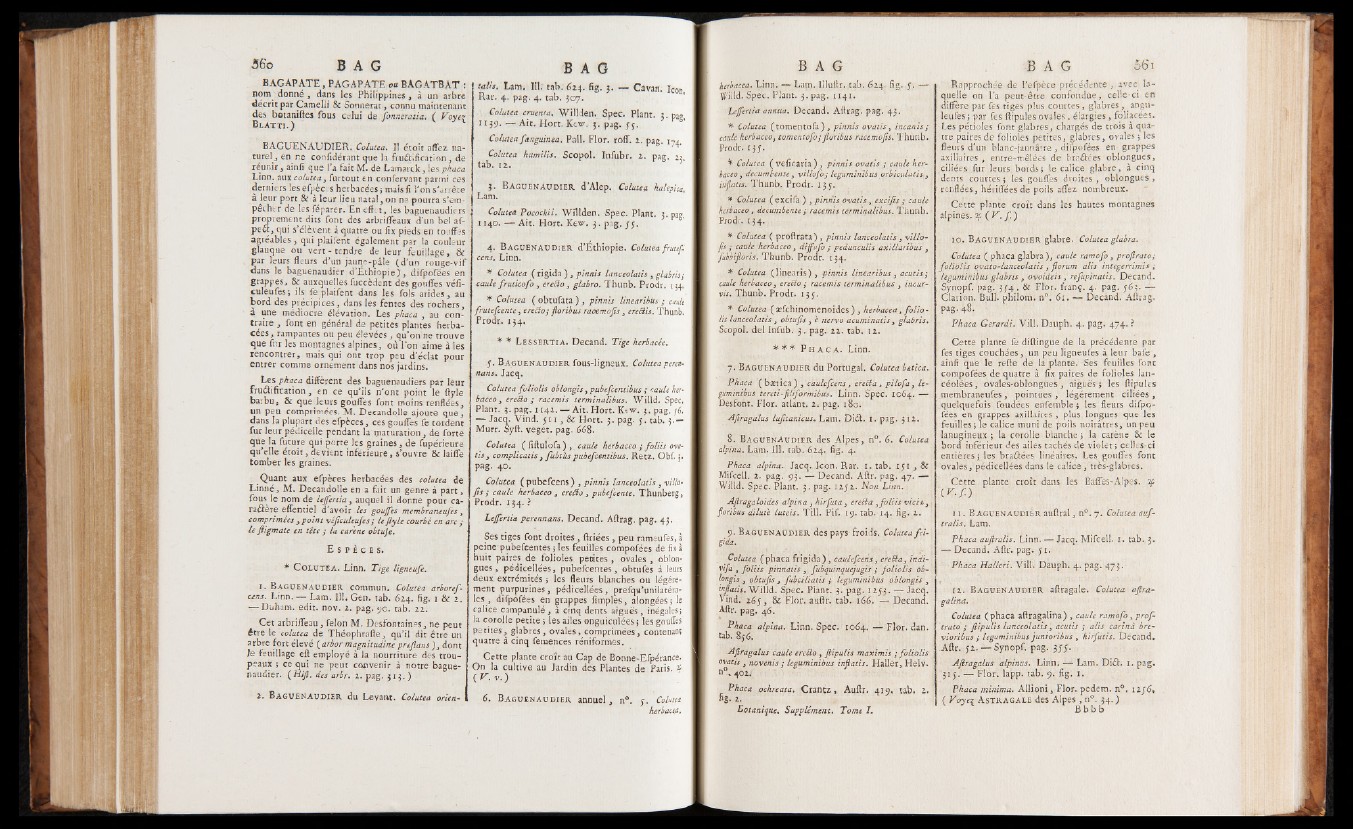 560 B A G
BAGAPATE, PAGAPATE ou BAGATBAT :
nom donné, dans les Philippines, à un arbre
décrit par Camelli & Sonnerat, connu maintenant
des botanistes sous celui de sonneratia. (Voyez
BLATTI.)
BAGUENAUDIER. Colutea. Il étoit assez na-
turel, en ne considérant que la fructification, de
réunir, ainsi que l'a fait M. de Lamarck, les phaca
Linn. aux colutea, surtout en conservant parmi ces
derniers les espèces herbacées; mais si l'on s'arrête
à leur port & à leur lieu natal, on ne pourra s'em-
pêcher de les séparer. En effet, les baguenaudiers
proprement dits sont des arbrisseaux d'un bel as-
pect, qui s'élèvent à quatre ou six pieds en touffes
agréables, qui plaisent également par la couleur
glauque ou vert-tendre de leur feuillage, &
par leurs fleurs d'un jaune-pâle (d'un rouge-vif
dans le baguenaudier d'Ethiopie), disposées en
grappes, & auxquelles succèdent des gousses vési-
culeuses; ils se plaisent dans les sols arides, au
bord des précipices, dans les fentes des rochers,
à une médiocre élévation. Les phaca, au con-
traire, sont en général de petites plantes herba-
cées, rampantes ou peu élevées, qu'on ne trouve
que sur les montagnes alpines, où l'on aime à les
rencontrer, mais qui ont trop peu d'éclat pour
entrer comme ornement dans nos jardins.
Les phaca diffèrent des baguenaudiers par leur
fructification, en ce qu'ils n'ont point le style
barbu, & que leurs gousses sont moins renflées,
un peu comprimées. M. Decandolle ajoute que,
dans la plupart des espèces, ces gousses se tordent
sur leur pédicelle pendant la maturation, de sorte
que la suture qui porte les graines, de supérieure
qu'elle étoit, devient inférieure, s'ouvre & laisse
tomber les graines.
Quant aux espèces herbacées des colutea de
Linné, M. Decandolle en a fait un genre à part,
sous le nom de lessertia, auquel il donne pour ca-
ractère essentiel d'avoir les gousses membraneuses,
comprimées, point vésiculeuses; le style courbé en arc;
le stigmate en tête; la carène obtuse.
ESPÈCES.
* COLUTEA. Linn. Tige ligneuse.
1. BAGUENAUDIER commun. Colutea arboref-
cens. Linn. — Lam. Ill. Gen. tab. 624. fig. 1 & 2.
— Duham. edit. nov. 2. pag. 90. tab. 22.
Cet arbrisseau, selon M. Desfontaines, ne peut
être le colutea de Théophraste, qu'il dit être un
arbre fort élevé (arbor magnitudine prestans), dont
le feuillage est employé à la nourriture des trou-
peaux; ce qui ne peut convenir à notre bague-
naudier. (Hist. des arbr. 2. pag. 313.)
2. BAGUENAUDIER du Levant. Colutea orien-
B A G
talis. Lam. Ill. tab. 624. fig. 3. — Cavan. Icon.
Rar. 4. pag. 4. tab. 307.
Colutea cruenta. Willden. Spec. Plant. 3. pag.
1139. — Ait. Hort. Kew. 3. pag. 55.
Colutea sanguinea. Pall. Flor. ross. 2. pag. 174.
Colutea humilis. Scopol. Insubr. 2. pag. 23.
tab. 12.
3. BAGUENAUDIER d'Alep. Colutea halepica.
Lam.
Colutea Pocockii. Willden. Spec. Plant. 3. pag.
1140. — Ait. Hort. Kew. 3. pag. 55.
4. BAGUENAUDIER d'Éthiopie. Colutea frutes-
cens. Linn.
* Colutea (rigida), pinnis lanceolatis, glabris;
caule fruticoso, erecto, glabro. Thunb. Prodr. 134.
* Colutea (obtusata), pinnis linearibus; caule
frutescente, erecto; floribus racemosis, erectis. Thunb.
Prodr. 134.
* * LESSERTIA. Decand. Tige herbacée.
5. BAGUENAUDIER sous-ligneux. Colutea peren-
nans. Jacq.
Colutea foliolis oblongis, pubescentibus; caule her-
baceo, erecto; racemis terminalibus. Willd. Spec.
Plant. 3. pag. 1142. — Ait. Hort. Kew. 3. pag. 56.
— Jacq. Vind. 311, & Hort. 3. pag. 5. tab. 3. —
Murr. Syst. veget. pag. 668.
Colutea (fistulosa), caule herbaceo; foliis ova-
tis, complicatis, subtùs pubescentibus. Retz. Obs. 3.
pag. 40.
Colutea (pubescens), pinnis lanceolatis, villo-
sis; caule herbaceo, erecto, pubescente. Thunberg,
Prodr. 134. ?
Lessertia perennans. Decand. Astrag. pag. 43.
Ses tiges sont droites, striées, peu rameuses, à
peine pubescentes; les feuilles composées de six à
huit paires de folioles petites, ovales, oblon-
gues, pédicellées, pubescentes, obtuses à leurs
deux extrémités; les fleurs blanches ou légère-
ment purpurines, pédicellées, presqu'unilatéra-
les, disposées en grappes simples, alongées; le
calice campanulé, à cinq dents aiguës, inégales;
la corolle petite; les ailes onguiculées; les gousses
petites, glabres, ovales, comprimées, contenant
quatre à cinq semences réniformes.
Cette plante croît au Cap de Bonne-Espérance.
On la cultive au Jardin des Plantes de Paris. ♃
(V. v.)
6. BAGUENAUDIER annuel, n°. 5. Colutea
herbacea.
B A G
herbacea. Linn. — Lam. Illustr. tab. 624. fig. 5. —
Willd. Spec. Plant. 3. pag. 1141.
Lessertia annua. Decand. Astrag. pag. 43.
* Colutea (tomentosa), pinnis ovatis, incanis;
caule herbaceo, tomentoso; floribus racemosis. Thunb.
Prodr. 135.
* Colutea (vesicaria), pinnis ovatis; caule her-
baceo, decumbente, villoso; leguminibus orbiculatis,
inflatis. Thunb. Prodr. 135.
* Colutea (excisa), pinnis ovatis, excisis; caule
herbaceo, decumbente; racemis terminalibus. Thunb.
Prodr. 134.
* Colutea (prostrata), pinnis lanceolatis, villo-
sis; caule herbaceo, diffuso; pedunculis axillaribus,
subbifloris. Thunb. Prodr. 134.
* Colutea (linearis), pinnis linearibus, acutis;
caule herbaceo, erecto; racemis terminalibus, incur-
vis. Thunb. Prodr. 135.
* Colutea (æschinomenoides), herbacea, folio-
lis lanceolatis, obtusis, è nervo acuminatis, glabris.
Scopol. del Insub. 3. pag. 22. tab. 12.
*** PHACA. Linn.
7. BAGUENAUDIER du Portugal. Colutea betica.
Phaca (bætica), caulescens, erecta, pilosa, le-
guminibus tereti-filiformibus. Linn. Spec. 1064. —
Desfont. Flor. atlant. 2. pag. 180.
Astragalus lusitanicus. Lam. Dict. 1. pag. 312.
8. BAGUENAUDIER des Alpes, n°. 6. Colutea
alpina. Lam. Ill. tab. 624. fig. 4.
Phaca alpina. Jacq. Icon. Rar. 1. tab. 151, &
Miscell. 2. pag. 93. — Decand. Astr. pag. 47. —
Willd. Spec. Plant. 3. pag. 1252. Non Linn.
Astragaloides alpina, hirsuta, erecta, foliis viciæ,
floribus dilutè luteis. Till. Pis. 19. tab. 14. fig. 2.
9. BAGUENAUDIER des pays froids. Colutea fri-
gida.
Colutea (phaca frigida), caulescens, erecta, indi-
visa, foliis pinnatis, subquinquejugis; foliolis ob-
longis, obtusis, subciliatis; leguminibus oblongis,
inflatis. Willd. Spec. Plant. 3. pag. 1253. — Jacq.
Vind. 265, & Flor. austr. tab. 166. — Decand.
Astr. pag. 46.
Phaca alpina. Linn. Spec. 1064. — Flor. dan.
tab. 856.
Astragalus caule erecto, stipulis maximis; foliolis
ovatis, novenis; leguminibus inflatis. Haller, Helv.
n°. 402.
Phaca ochreata. Crantz, Austr. 419. tab. 2.
fig. 2.
Botanique. Supplément. Tome I.
B A G 561
Rapprochée de l'espèce précédente, avec la-
quelle on l'a peut-être confondue, celle-ci en
diffère par ses tiges plus courtes, glabres, angu-
leuses; par ses stipules ovales, élargies, foliacées.
Les pétioles sont glabres, chargés de trois à qua-
tre paires de folioles petites, glabres, ovales; les
fleurs d'un blanc-jaunâtre, disposées en grappes
axillaires, entre-mêlées de bractées oblongues,
ciliées sur leurs bords; le calice glabre, à cinq
dents courtes; les gousses droites, oblongues,
renflées, hérissées de poils assez nombreux.
Cette plante croît dans les hautes montagnes
alpines. ♃ (V. s.)
10. BAGUENAUDIER glabre. Colutea glabra.
Colutea (phaca glabra), caule ramoso, prostrato;
foliolis ovato-lanceolatis, florum alis integerrimis,
leguminibus glabris, ovoideis, resupinatis. Decand.
Synops. pag. 354, & Flor. franç. 4. pag. 563. —
Clarion. Bull. philom. n°. 61. — Decand. Astrag.
pag. 48.
Phaca Gerardi. Vill. Dauph. 4. pag. 474. ?
Cette plante se distingue de la précédente par
ses tiges couchées, un peu ligneuses à leur base,
ainsi que le reste de la plante. Ses feuilles sont
composées de quatre à six paires de folioles lan-
céolées, ovales-oblongues, aiguës; les stipules
membraneuses, pointues, légèrement ciliées,
quelquefois soudées ensemble; les fleurs dispo-
sées en grappes axillaires, plus longues que les
feuilles; le calice muni de poils noirâtres, un peu
lanugineux; la corolle blanche; la carène & le
bord inférieur des ailes tachés de violet; celles-ci
entières; les bractées linéaires. Les gousses sont
ovales, pédicellées dans le calice, très-glabres.
Cette plante croît dans les Basses-Alpes. ♃
(V. s.)
11. BAGUENAUDIER austral, n°. 7. Colutea auf-
tralis. Lam.
Phaca australis. Linn. — Jacq. Miscell. 1. tab. 3.
— Decand. Astr. pag. 51.
Phaca Halleri. Vill. Dauph. 4. pag. 473.
12. BAGUENAUDIER astragale. Colutea astra-
galina.
Colutea (phaca astragalina), caule ramoso, prof-
trato; stipulis lanceolatis, acutis; alis carinâ bre-
vioribus; leguminibus junioribus, hirsutis. Decand.
Astr. 52. — Synops. pag. 355.
Astragalus alpinus. Linn. — Lam. Dict. 1. pag.
315. — Flor. lapp. tab. 9. fig. 1.
Phaca minima. Allioni, Flor. pedem. n°. 1256.
(Voyez ASTRAGALE des Alpes, n°. 34.)
B b b b